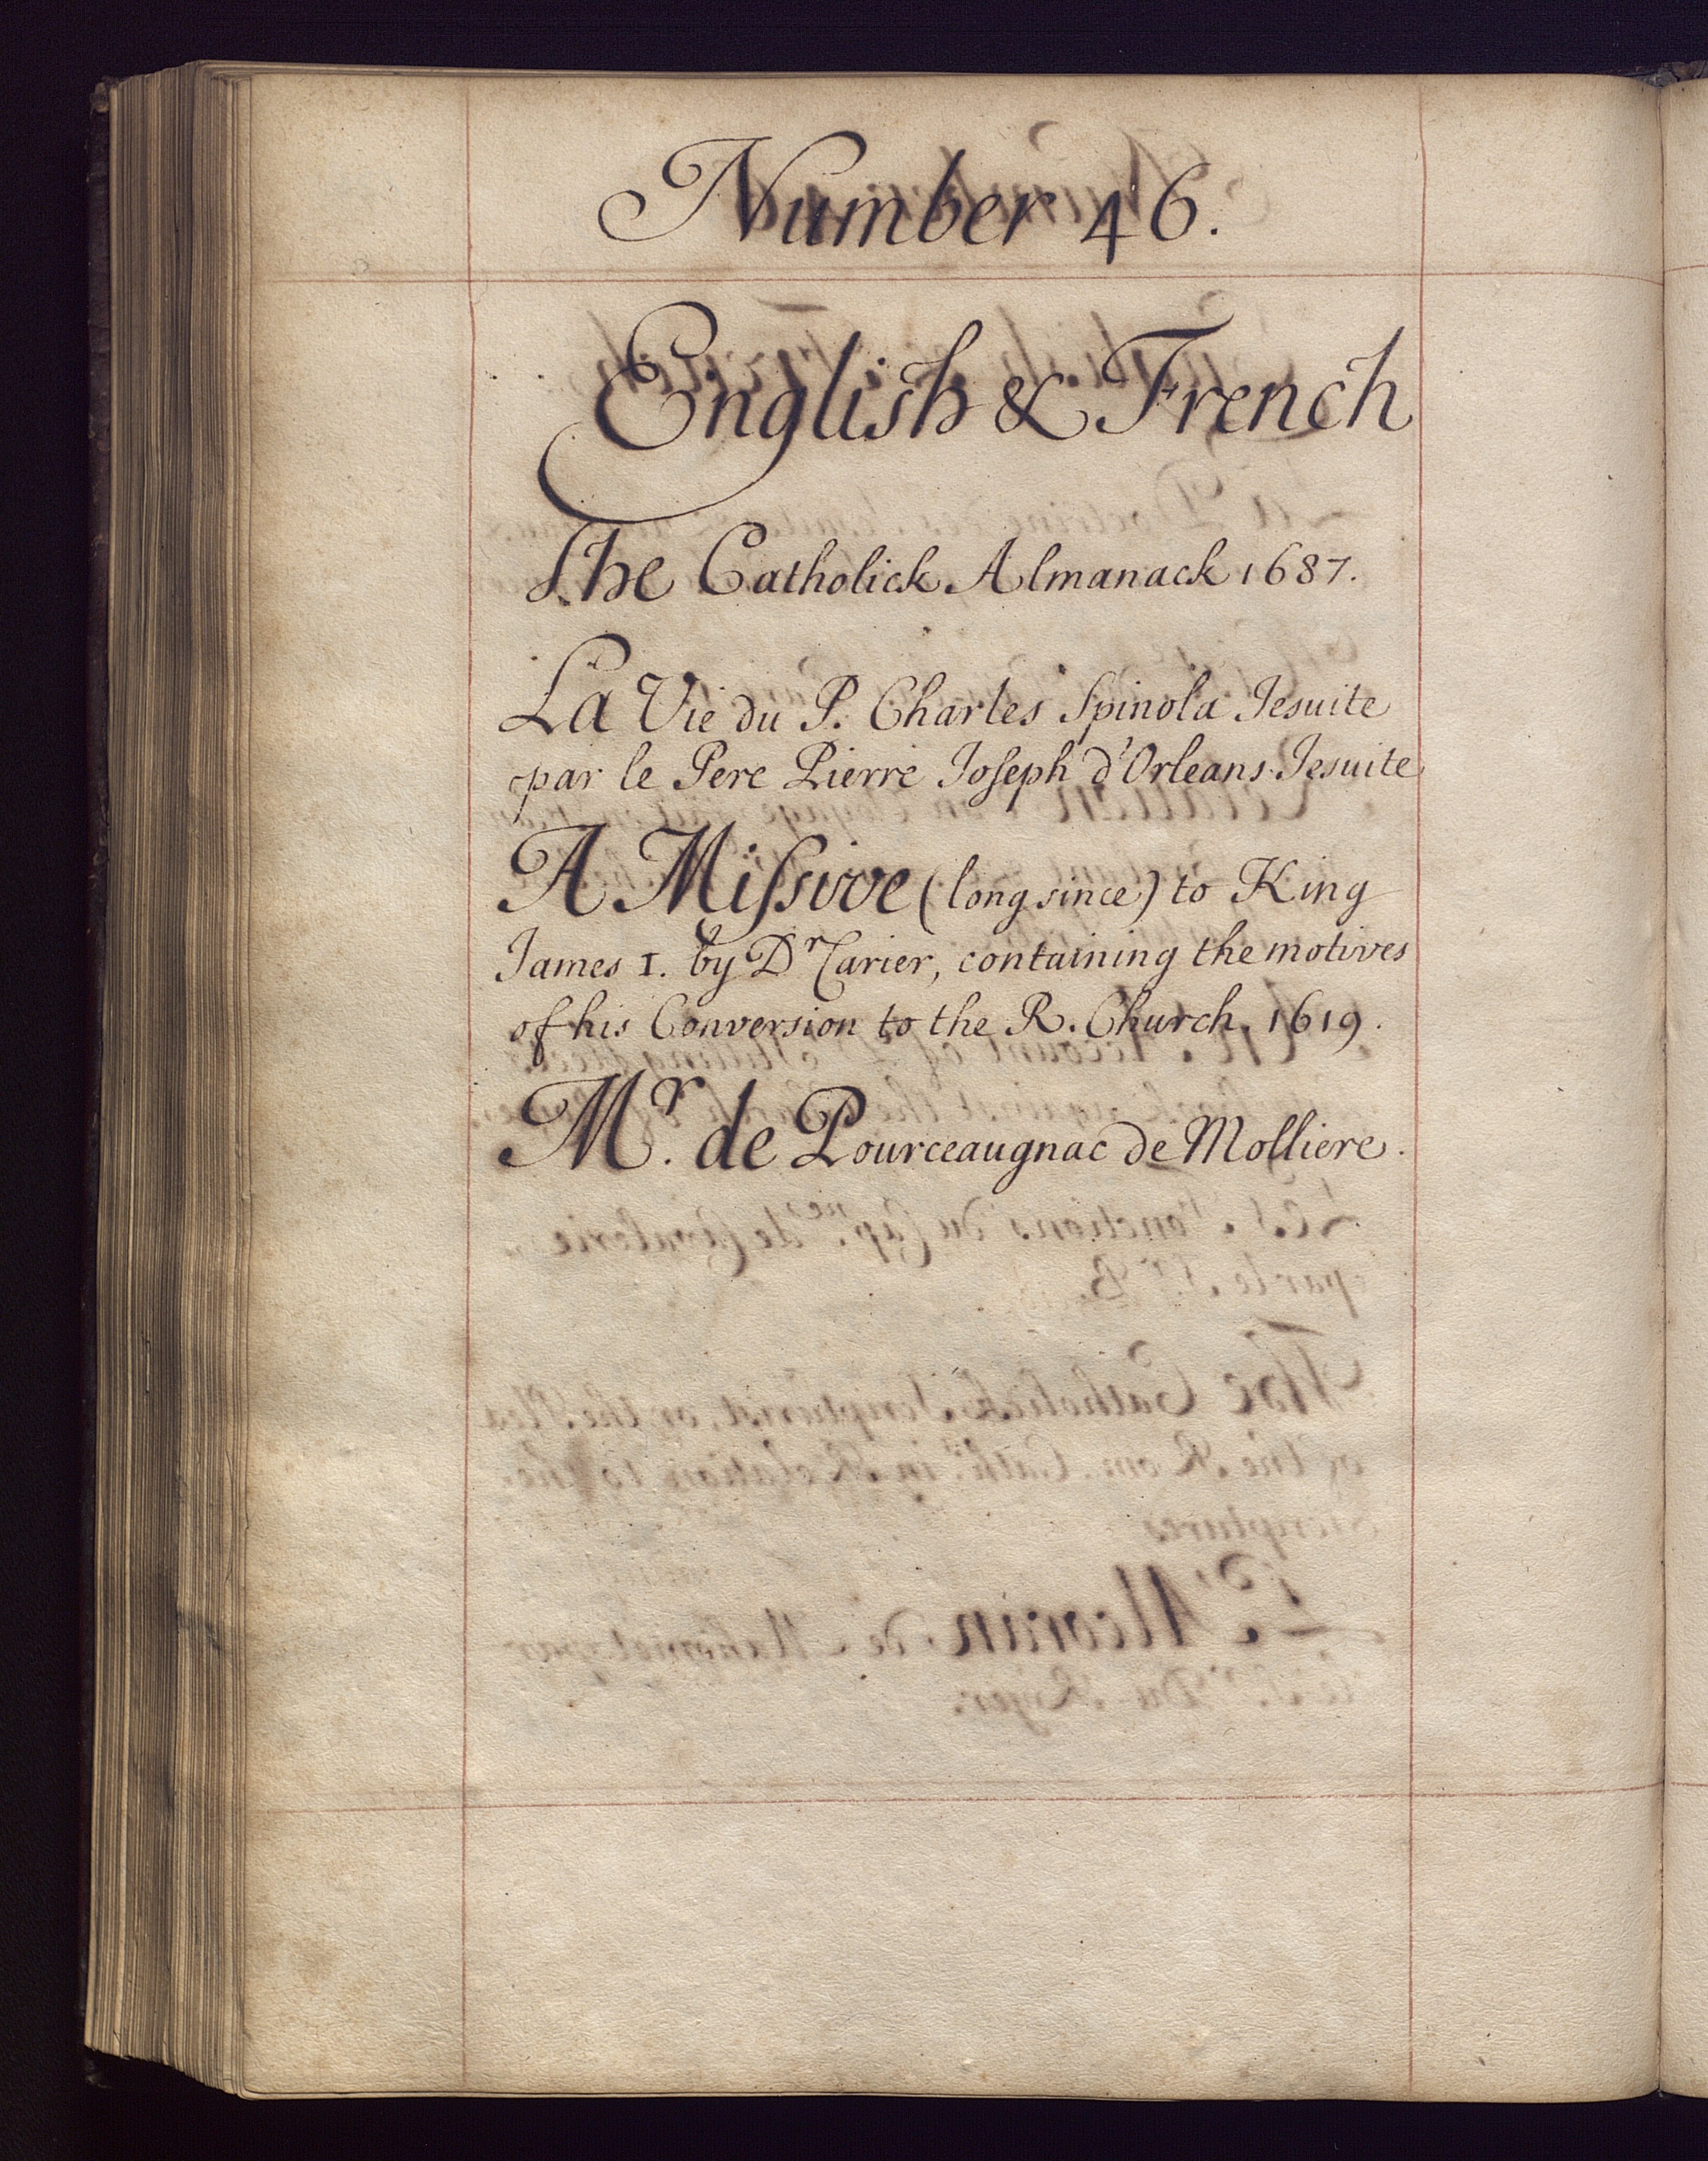 Number 46.
English & French
The Catholick Almanack 1687.
La Vie du P. Charles Spinola Jesuite
par le Pere Pierre Joseph d'Orleans Jesuite
A Missive (long since) to King
James I. by Dr Carier, containing the motives
of his Conversion to the R. Church. 1619.
Mr. de Pourceaugnac de Molliere.